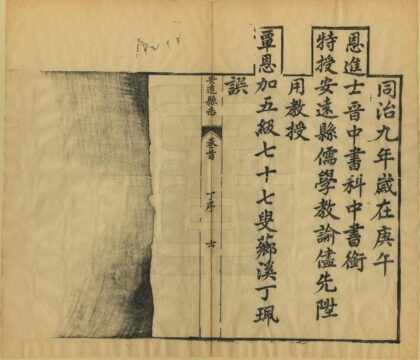 同治九年歲在庚午
恩進士晉中書科中書銜
特授安遠縣儒學教諭儘先陞
用教授
覃恩加五級七十七叟薌溪丁珮
譔
安遠縣志
卷首
丁序
六